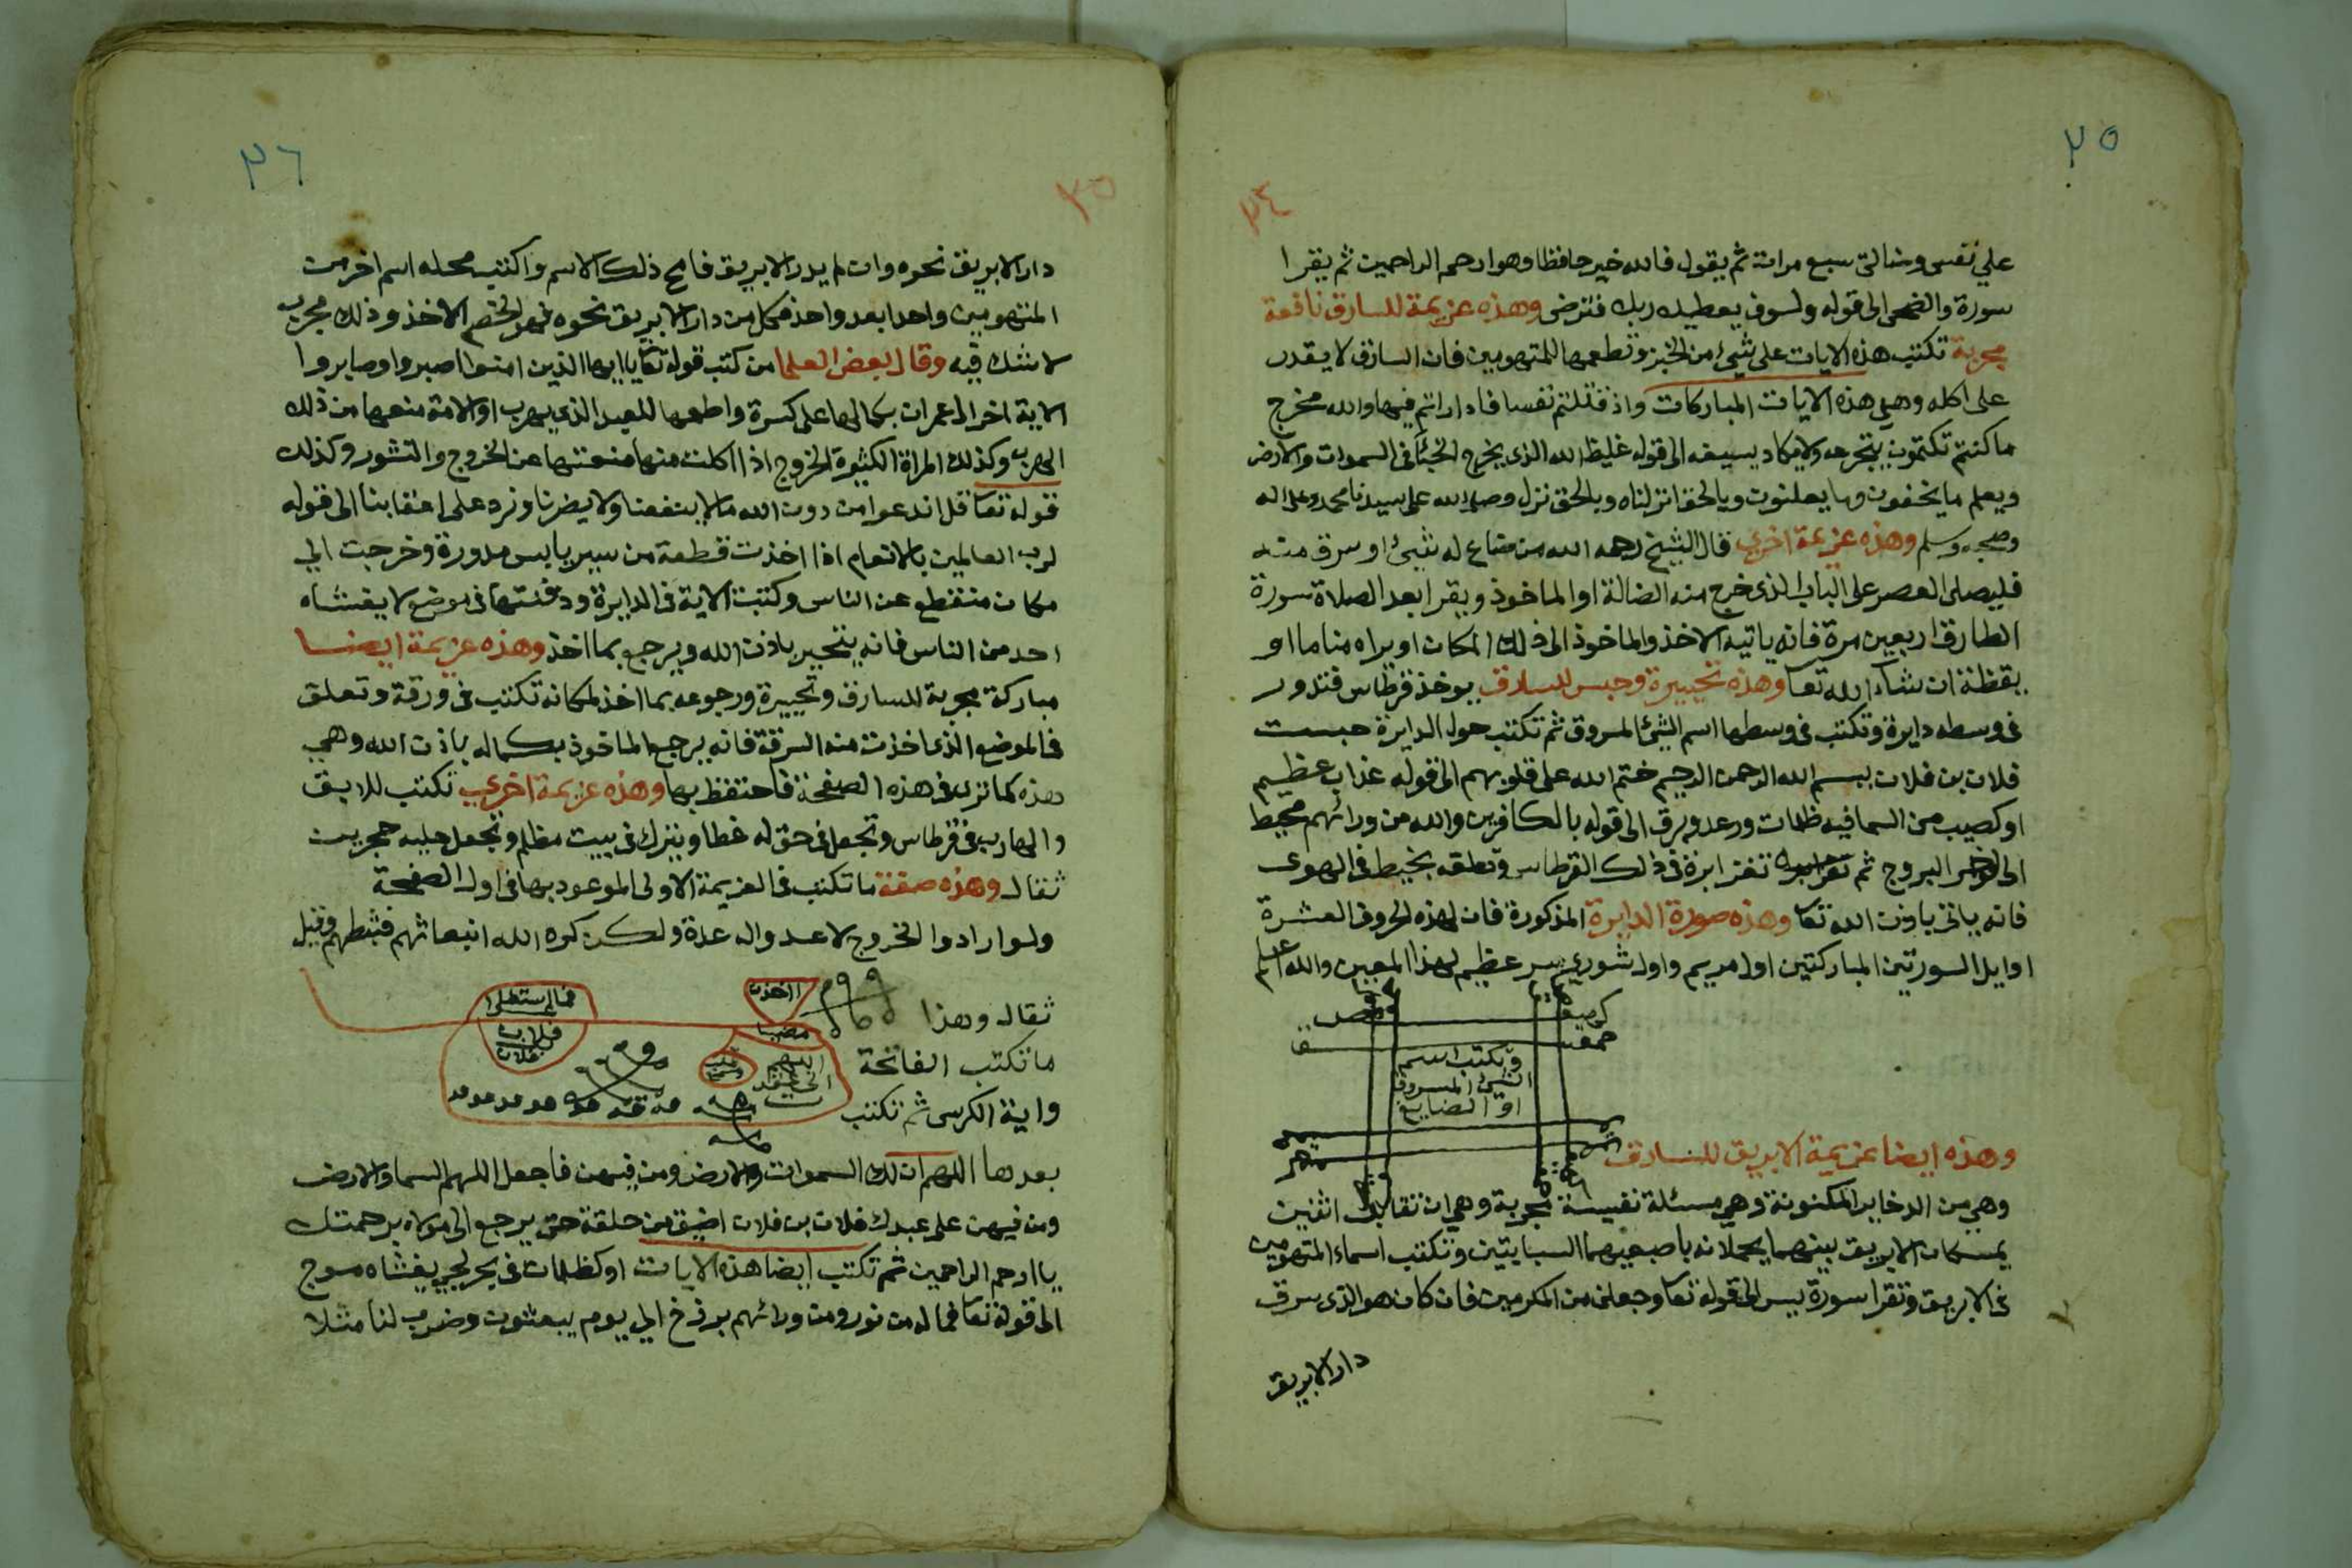 ٢٥
٢٤
علي نفسى وضالتى سبع مرات ثم يقول فالله خير حافظا وهو ارحم الراحمين ثم يقرا
سورة والضحى الى قوله ولسوف يعطيك ربك فترضى وهذه عزيمة للسارق نافعة
مجربة تكتب هذه الايات على شيئ من الخبز وتطعمها للمتهومين فان السارق لا يقدر
على اكله وهي هذه الايات المباركات واذ قتلتم نفسا فاداراتم فيها والله مخرج
ما كنتم تكتمون يتجرعه ولا يكاد يسيغه الى قوله غليظ الله الذى يخرج الخبئ فى السموات والارض
ويعلم ما يخفون وما يعلنون وبالحق انزلناه وبالحق نزل وصلى الله على سيدنا محمد وعلى اله
وصحبه وسلم وهذه عزيمة اخري قال الشيخ رحمه الله من ضاع له شيئ او سرق منه
فليصلى العصر على الباب الذى خرج منه الضالة او الماخوذ ويقرا بعد الصلاة سورة
الطارق اربعين مرة فانه ياتيه الاخذ والماخوذ الى ذلك المكان او يراه مناما او
يقظة ان شاء الله تعا وهذه تحييرة وحبس للسارق يوخذ قرطاس فتدور
فى وسطه دايرة وتكتب فى وسطها اسم الشئ المسروق ثم تكتب حول الدايرة حبست
فلان بن فلان بسم الله الرحمن الرحيم ختم الله على قلوبهم الى قوله عذاب عظيم
او كصيب من السما فيه ظلمات ورعد وبرق الى قوله بالكافرين والله من ورائهم محيط
الى اخر البروج ثم تغرز ابرة فى ذلك القرطاس وتعلقه بخيط فى الهوى
فانه ياتى باذن الله تعا وهذه صورة الدايرة المذكورة فان لهذه الحروف العشرة
اوايل السورتين المباركتين اول مريم واول شورى سر عظيم لهذا المعين والله اعلم
كهيعص
حمعسق
وتكتب اسم
الشئ المسروق
او الضايع
وهذه ايضا عزيمة الابريق للسارق
وهي من الدخاير المكنونة وهي مسئلة نفيسة مجربة وهي ان تقابل اثنين
يمسكان الابريق بينهما يحملانه باصبعيهما السبايتين وتكتب اسماء المتهومين
فى الابريق وتقرا سورة يس الى قوله تعا وجعلنى من المكرمين فان كان هو الذى سرق
دار الابريق
٢٦
٢٥
دار الابريق نحوه وان لم يدر الابريق فامح ذلك الاسم واكتب محله اسم اخر من
المتهومين واحدا بعد واحد فكل من دار الابريق نحوه فهو الخصم الاخذ وذلك مجرب
لا شك فيه وقال بعض العلما من كتب قوله تعا يا ايها الذين امنوا اصبروا وصابروا
الاية اخر ال عمران بكمالها على كسرة واطعمها للعبد الذى يهرب او الامة منعها من ذلك
الهرب وكذلك المراة الكثيرة الخروج اذا اكلت منها منعتها عن الخروج والنشور وكذلك
قوله تعا قل اندعوا من دون الله ما لا ينفعنا ولا يضرنا ونرد على اعقابنا الى قوله
لرب العالمين بالانعام اذا اخذت قطعة من سير يابس مدورة وخرجت الي
مكان منقطع عن الناس وكتبت الاية فى الدايرة ودفنتها فى موضع لا يغشاه
احد من الناس فانه يتحير باذن الله ويرجع بما اخذ وهذه عزيمة ايضا
مباركة مجربة للسارق وتحييره ورجوعه بما اخذ لمكانه تكتب فى ورقة وتعلق
فى الموضع الذى اخذت منه السرقة فانه يرجع الماخوذ بكماله باذن الله وهي
هذه كما ترى فى هذه الصفحة فاحتفظ بها وهذه عزيمة اخري تكتب للابق
والهارب فى قرطاس وتجعل فى حق له غطا ويترك فى بيت مظلم وتجعل عليه حجرين
ثقال وهذه صفة ما تكتب فى العزيمة الاولى الموعود بها فى اول الصفحة
ولو ارادوا الخروج لاعدوا له عدة ولكن كره الله انبعاثهم فثبطهم وقيل
ثقال وهذا
ما تكتب الفاتحة
واية الكرسى ثم تكتب
فلان
بعدها اللهم ان لك السموات والارض ومن فيهن فاجعل اللهم السما والارض
ومن فيهن على عبدك فلان بن فلان اضيق من حلقة حتى يرجع الى مولاه برحمتك
يا ارحم الراحمين ثم تكتب ايضا هذه الايات او كظلمات فى بحر لجى يغشاه موج
الى قوله تعا فما له من نور ومن ورائهم برزخ الي يوم يبعثون وضرب لنا مثلا